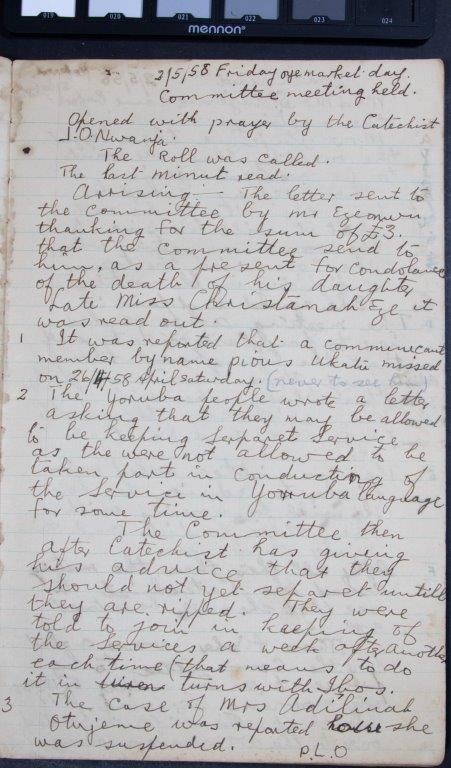 019 020 021 022 023 024
mennon
2/5/58 Friday oye market day.
Committee meeting held.
Opened with prayer by the Catechist
J.O. Nwanja.
The Roll was called.
The last minut read.
Arrising - The letter sent to
the Committee by mr Ezeonwu
thanking for the sum of £3.
that the committee send to
him, as a present for Condolance
of the death of his daughter
Late Miss Christianah Eze it
was read out.
1 It was reported that a communicant
member by name pious Ukatu missed
on 26/4/58 April Saturday. (never to see him)
2 The Yoruba people wrote a letter
asking that they may be allowed
to be keeping Separet Service
as the were not allowed to be
taken part in conducting of
the Service in Yorruba language
for some time.
The Committee then
after Catechist has giving
his advice that they
should not yet separet untill
they are ripped. They were
told to join in keeping of
the Services a week after another
each time (that means to do
it in turns with Ibos.
3 The case of Mrs Adilinah
Otujeme was reported how she
was suspended. P.L.O